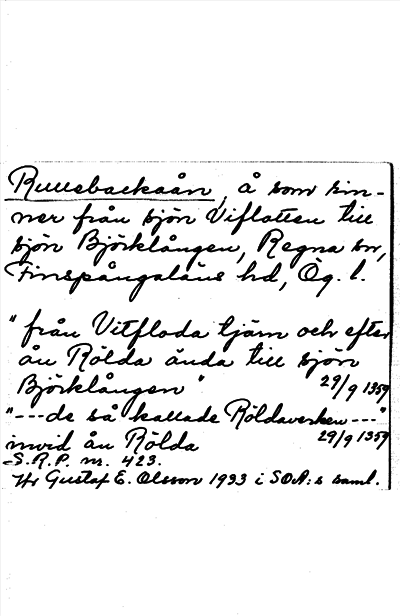 Runsbackaån, å som rin-
ner från sjön Viflotten till
sjön Björklången, Regna sn,
Finspångaläns hd, Ög. l.
"från Vitfloda tjärn och efter
ån Rölda ända till sjön
Björklången" 29/9 1359
"---de så kallade Röldaverken---"
invid ån Rölda 29/9 1359
S.R.P. nr. 423.
Gustaf E. Olsson 1933 i SOA:s saml.